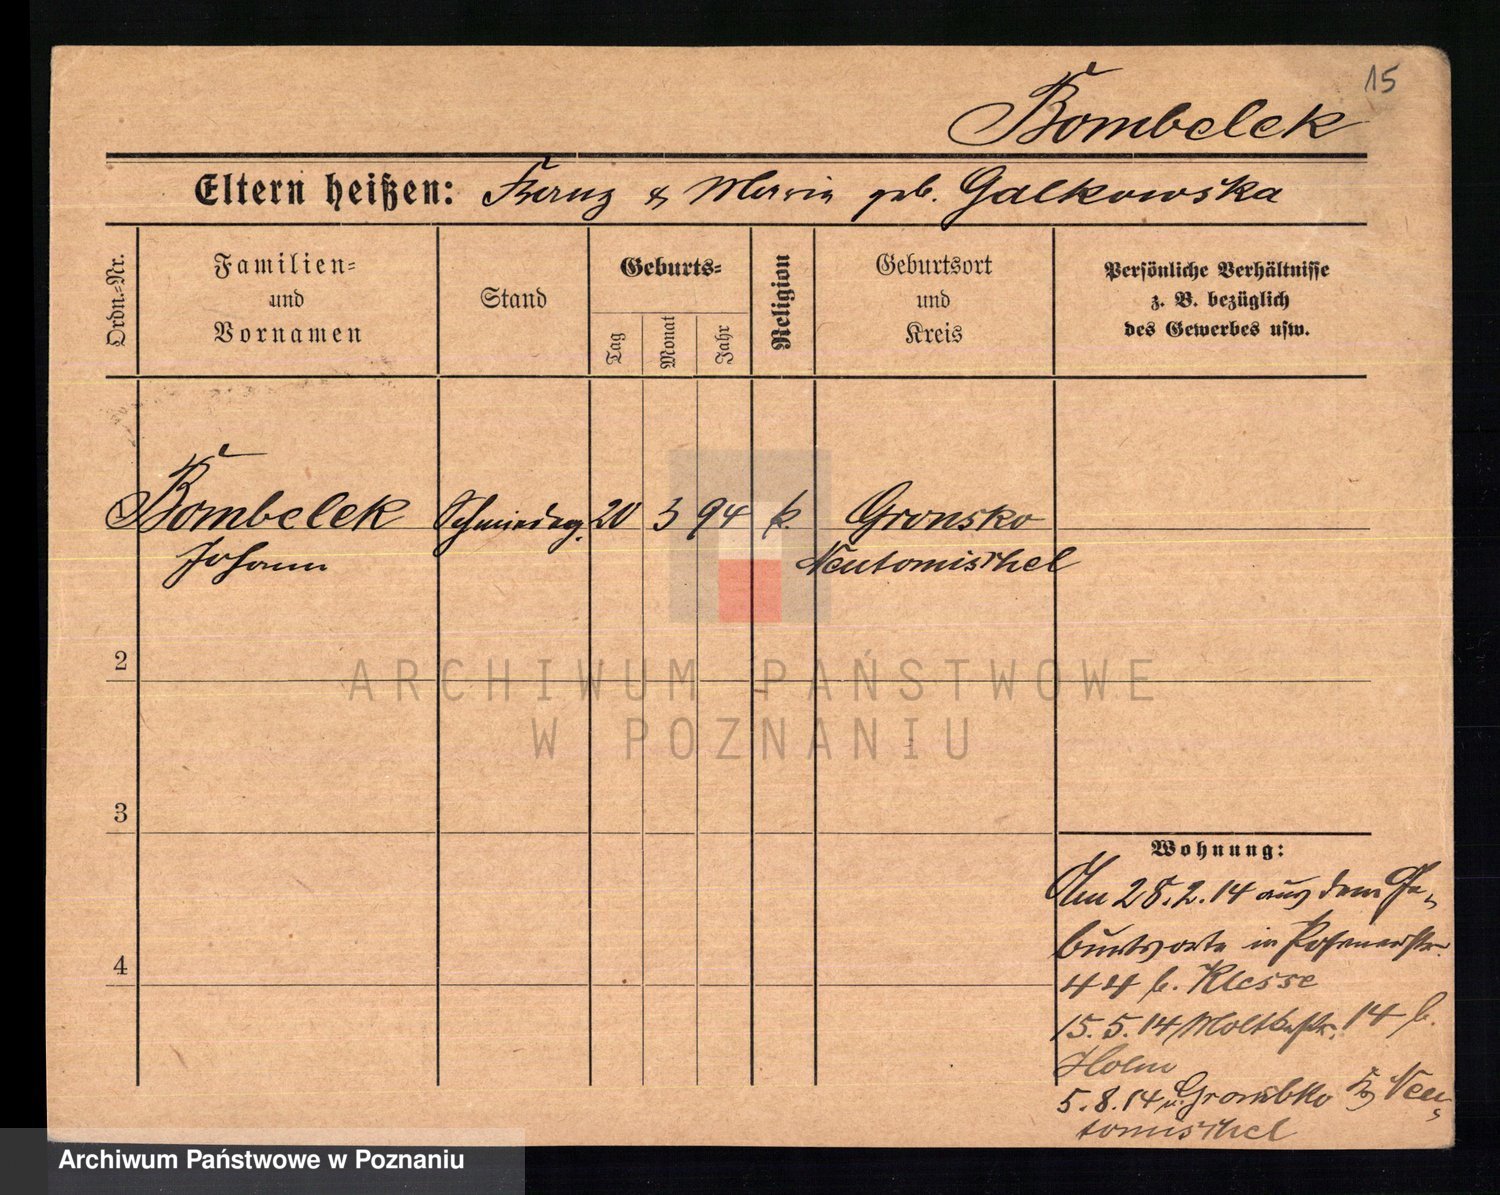 15
Bombelek
Eltern heißen: Franz & Maria geb. Galkowska
Ordn.-Nr.
Familien-
und
Vornamen
Stand
Geburts-
Tag
Monat
Jahr
Religion
Geburtsort
und
Kreis
Persönliche Verhältnisse
z. B. bezüglich
des Gewerbes usw.
Bombelek Schmiedeg. 20 3 94 k. Gronsko
Johann Neutomischel
2
3
4
Wohnung:
Am 28.2.14 aus dem Ge-
burtsorte in Posenerstr.
44 b. Klesse
15.5.14 Moltkestr. 14 b.
Holm
5.8.14 n. Neu-
tomischel
ARCHIWUM PAŃSTWOWE
W POZNANIU
Archiwum Państwowe w Poznaniu